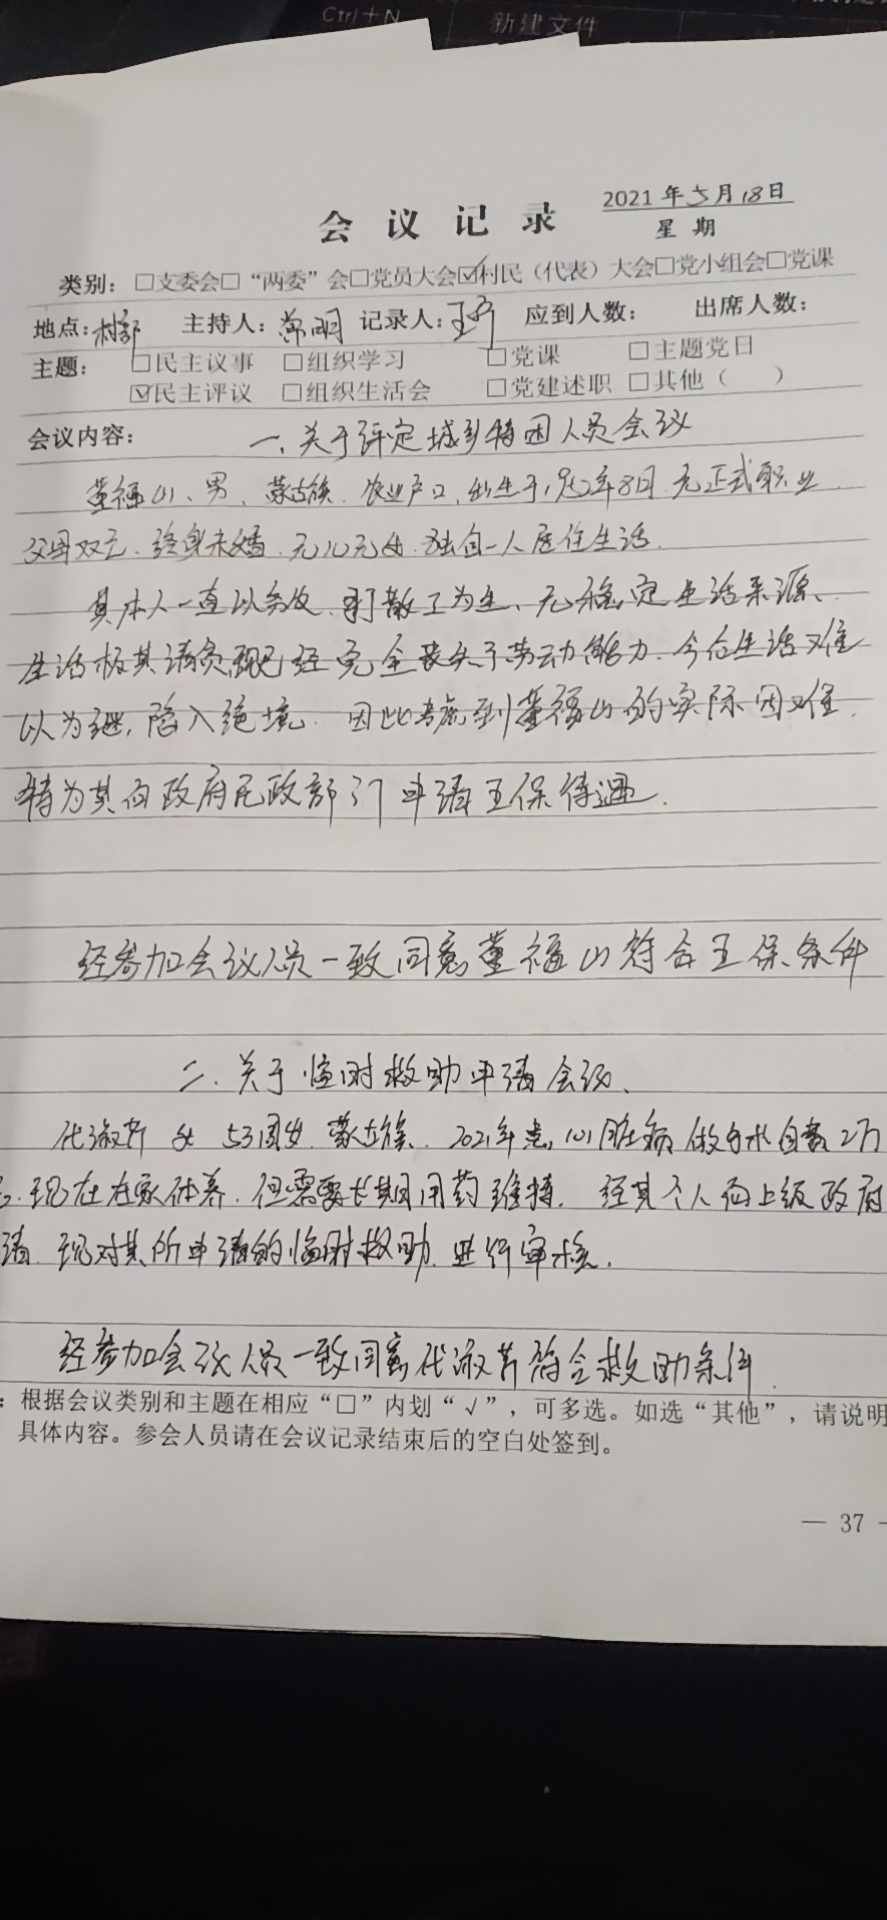 Ctrl+N 新建文件
会议记录 2021年5月18日
星期
类别：□支委会□“两委”会□党员大会☑村民（代表）大会□党小组会□党课
地点：村部 主持人： 记录人：王 应到人数： 出席人数：
主题： □民主议事 □组织学习 □党课 □主题党日
☑民主评议 □组织生活会 □党建述职 □其他（ ）
会议内容： 一、关于评定城乡特困人员会议
董福山、男、蒙古族、农业户口，出生于1952年8日，无正式职业
父母双亡、终身未婚，无儿无女，独自一人居住生活。
其本人一直以务农、打散工为生、无稳定生活来源、
生活极其清贫现已经完全丧失了劳动能力，今后生活难
以为继，陷入绝境。因此考虑到董福山的实际困难，
特为其向政府民政部门申请五保待遇。
经参加会议人员一致同意董福山符合五保条件
二、关于临时救助申请会议、
代淑芹 女 53周岁 蒙古族、2021年患心脏病做手术自费2万
元.现在在家休养，但需要长期用药维持。经其个人向上级政府
请，现对其所申请的临时救助，进行审核。
经参加会议人员一致同意代淑芹符合救助条件.
：根据会议类别和主题在相应“□”内划“√”，可多选。如选“其他”，请说明
具体内容。参会人员请在会议记录结束后的空白处签到。
— 37 —